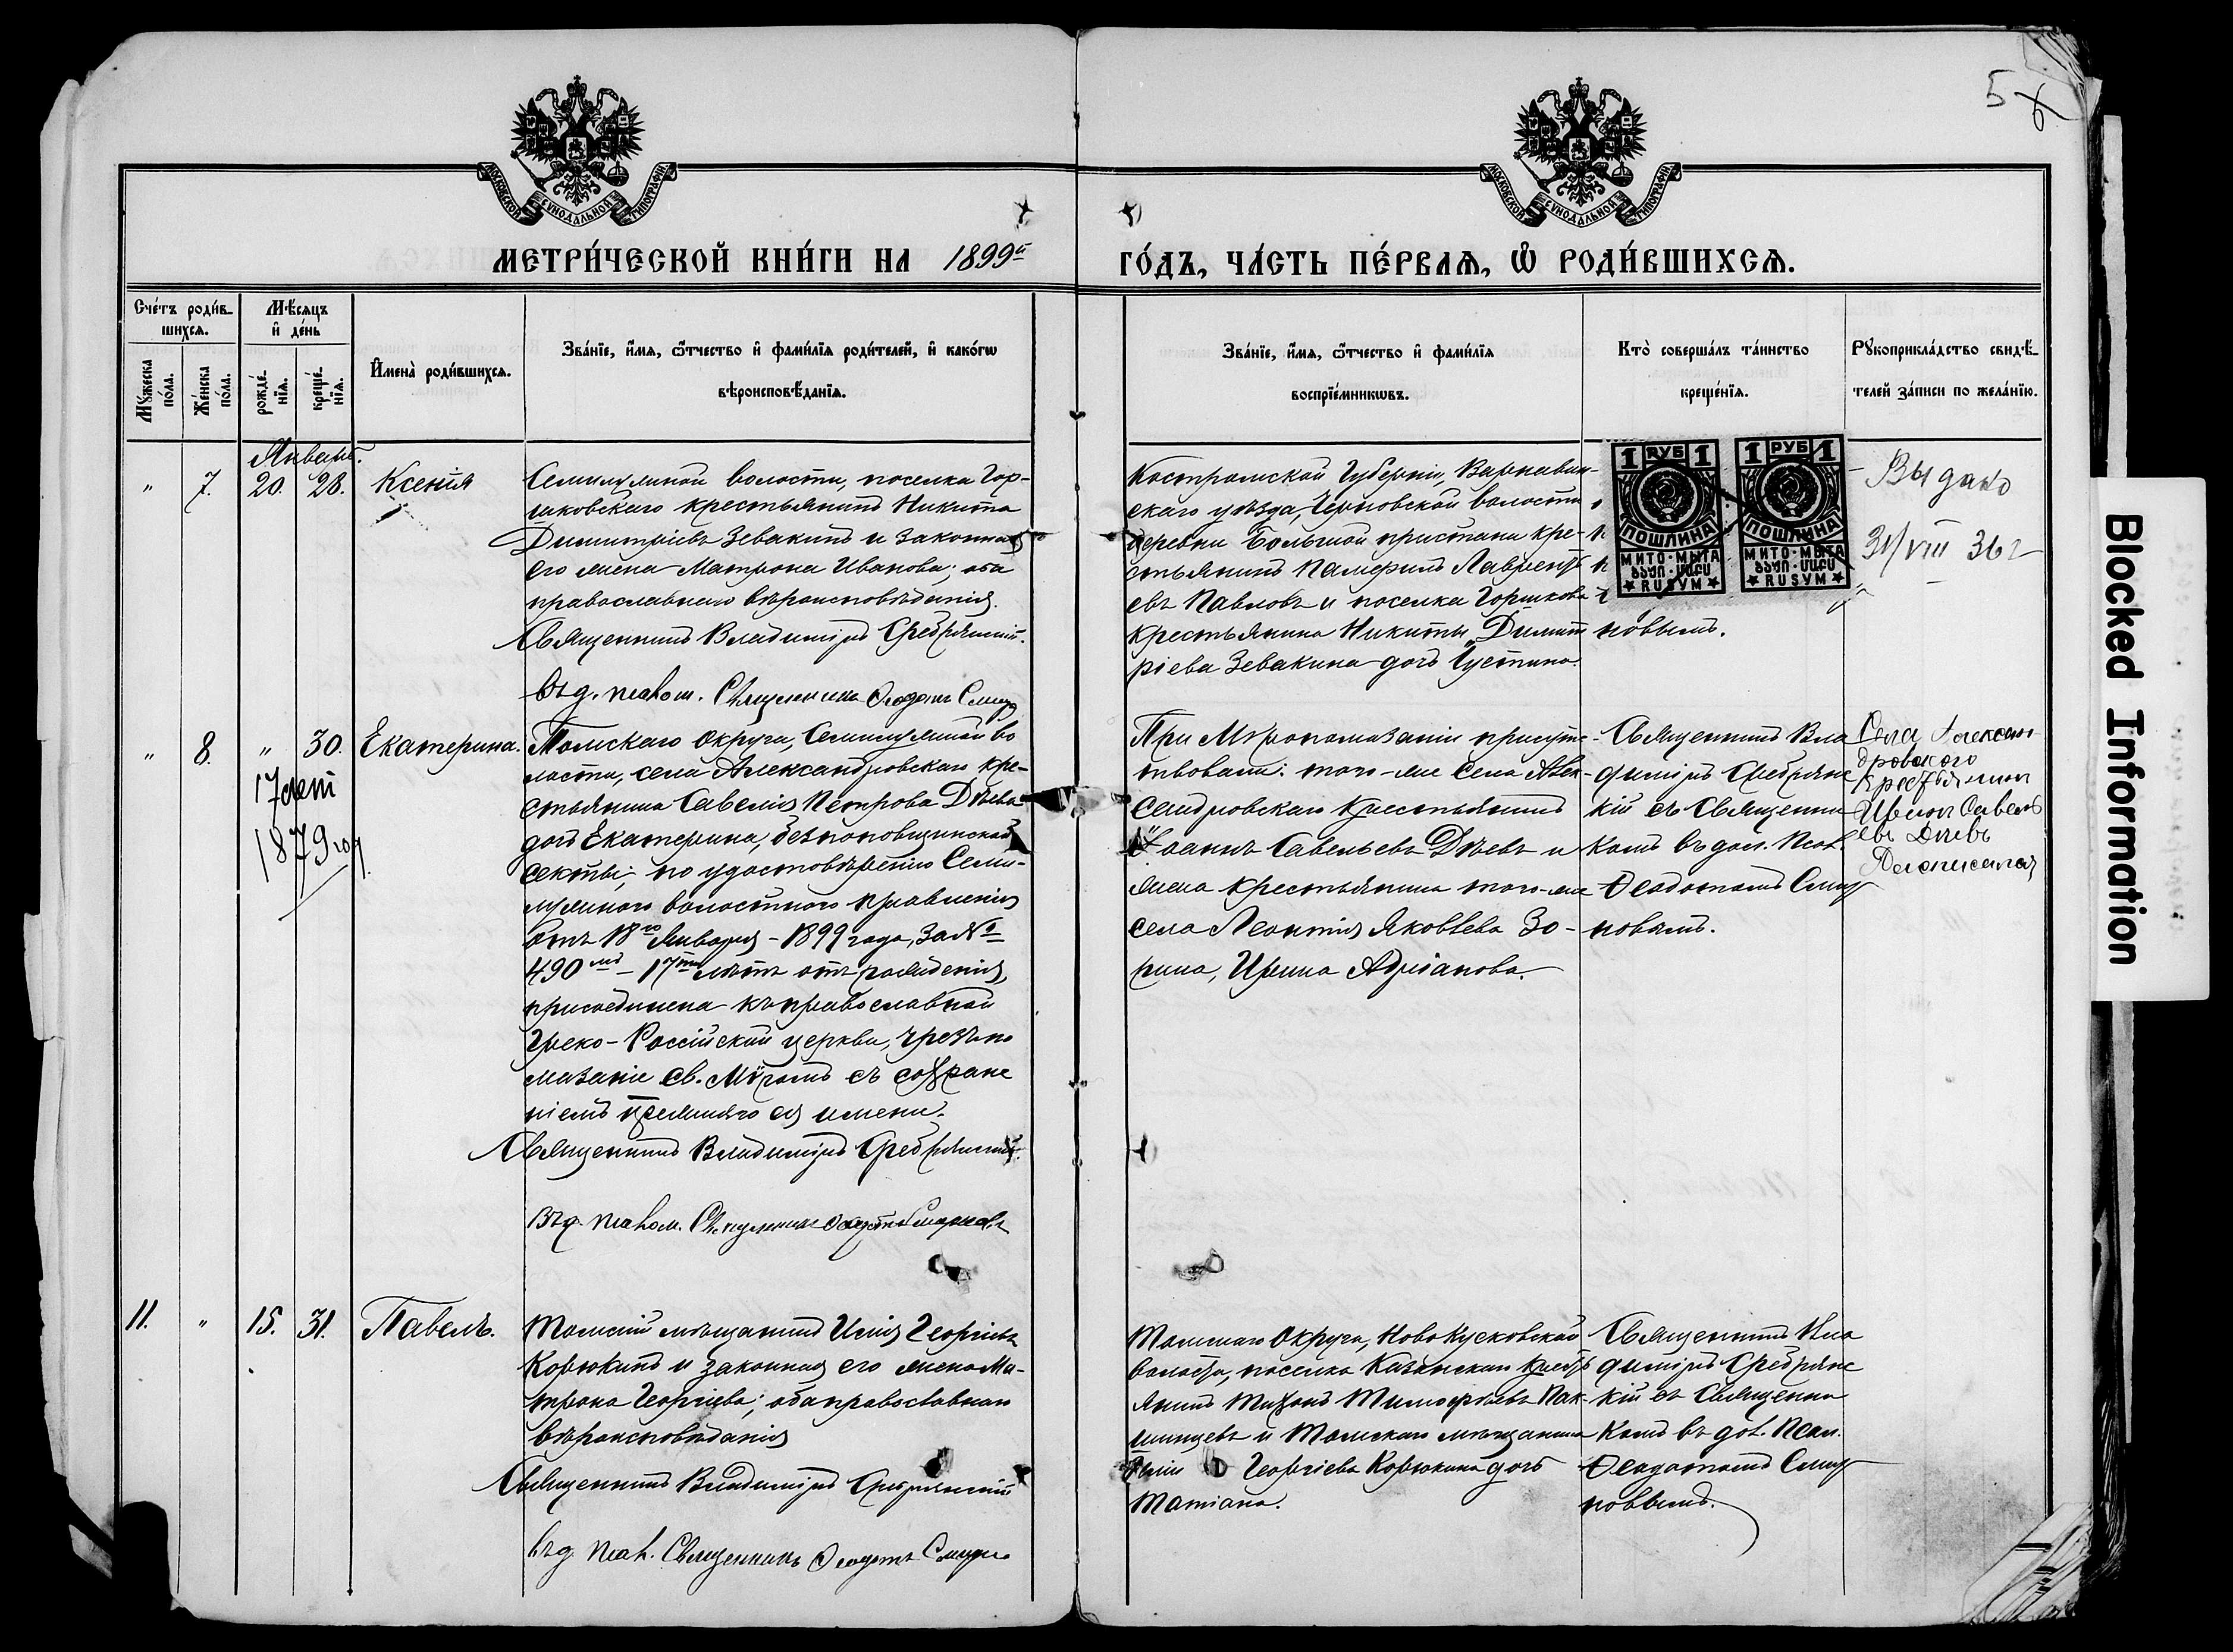 5
МОСКОВСКОЙ СѴНОДАЛЬНОЙ ТИПОГРАФІИ
МОСКОВСКОЙ СѴНОДАЛЬНОЙ ТИПОГРАФІИ
МЕТРИ́ЧЕСКОЙ КНИ́ГИ НА 1899й
ГО́ДЪ, ЧА́СТЬ ПЕ́РВАѦ, Ѽ РОДИ́ВШИХСѦ.
Сче́тъ роди́в-
шихсѧ.
Мꙋ́жеска
по́ла.
Же́нска
по́ла.
Мѣ́сѧцъ
и҆ де́нь
рожде́-
нїѧ.
креще́-
нїѧ.
И҆мена̀ роди́вшихсѧ.
Зва́нїе, и҆́мѧ, ѻ҆́тчество и҆ фами́лїѧ роди́телей, и҆ како́гѡ
вѣроисповѣ́данїѧ.
Зва́нїе, и҆́мѧ, ѻ҆́тчество и҆ фами́лїѧ
воспрїе́мникѡвъ.
Кто̀ соверша́лъ та́инство
креще́нїѧ.
Рꙋкоприкла́дство свидѣ́-
телей за́писи по жела́нїю.
Январь.
" 7. 20. 28. Ксенія
Семилужной волости, поселка Гор-
шковскаго крестьянинъ Никита
Димитріевъ Зевакинъ и законная
его жена Матрона Иванова; оба
православнаго вѣроисповѣданія.
Священникъ Владиміръ Сребрянскій.
въ д. псалом. Священникъ Ѳеодотъ Смир
Костромской Губерніи, Варнавин-
скаго уѣзда, Черновской волости
деревни Большой пристани кре-
стьянинъ Памфилъ Лаврентьевъ
евъ Павловъ и поселка Горшкова
крестьянина Никиты Димит
ріева Зевакина дочь Іустина.
новымъ.
1 РУБ 1
ПОШЛИНА
МИТО · МЫТА
RUSYM
1 РУБ 1
ПОШЛИНА
МИТО · МЫТА
RUSYM
Выдано
31/VIII 36 г
" 8. " 30. Екатерина.
17 лет
1879 год
Томскаго Округа, Семилужной во
лости, села Александровскаго кре-
стьянина Савелія Петрова Дѣева
дочь Екатерина, безпоповщинской
секты, по удостовѣренію Семи-
лужнаго волостного правленія
отъ 18го Января - 1899 года, за №
490мъ - 17ти лѣтъ отъ рожденія,
присоединена къ православной
Греко-Россійской церкви, чрезъ по
мазаніе св. Мѵромъ съ сохране
ніемъ прежняго ея имени.
Священникъ Владиміръ Сребрянскій.
Въ д. псалом. Священникъ Ѳеодотъ Смирновъ
При Мѵропомазаніи присутс-
твовали: того-же села Алек-
сандровскаго крестьянинъ
Іоаннъ Савельевъ Дѣевъ и
жена крестьянина того-же
села Леонтія Яковлева Зо-
рина, Ирина Адріанова.
Священникъ Вла
диміръ Сребрянс
кій съ Священни
комъ въ дол. Псал.
Ѳеодотомъ Смир
новымъ.
Села Александ
дровского
Крестьянин
Иванъ Савель
евъ Дѣевъ
Росписался
11. " 15. 31. Павелъ.
Томскій мѣщанинъ Илія Георгіевъ
Корюкинъ и законная его жена Ма-
трона Георгіева; оба православнаго
вѣроисповѣданія
Священникъ Владиміръ Сребрянскій
въ д. псал. Священникъ Ѳеодотъ Смирно
Томскаго Округа, Ново Кусковской
волости, поселка Казанскаго крест
янинъ Тихонъ Тимофеевъ
и Томскаго мѣщанина
Иліи Георгіева Корюкина дочь
Татіана.
Священникъ Вла
диміръ Сребрянс
кій съ Священни
комъ въ дол. Псал.
Ѳеодотомъ Смир
новымъ.
Blocked Information